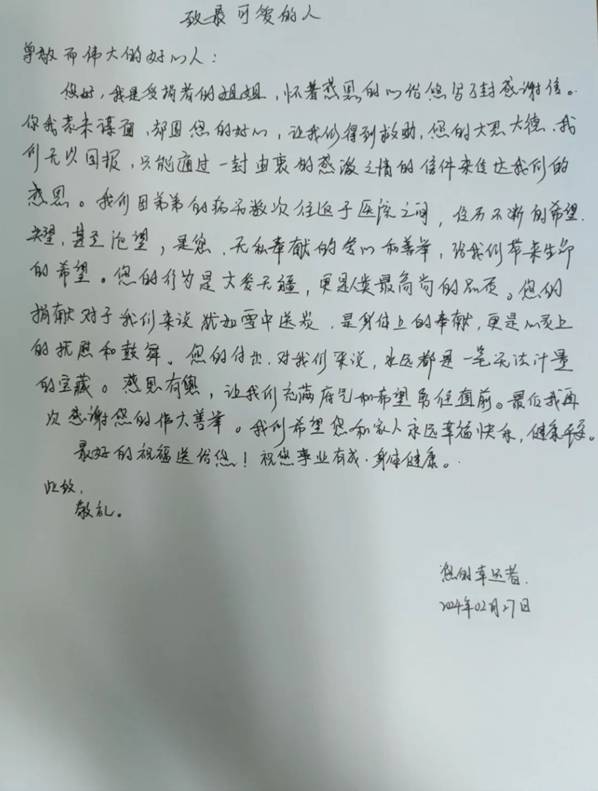 致最可爱的人
尊敬而伟大的好心人：
您好，我是受捐者的姐姐，怀着感恩的心给您写了封感谢信。
你我素未谋面，却因您的好心，让我们得到救助，您的大恩大德，我
们无以回报，只能通过一封由衷的感激之情的信件来传达我们的
感恩。我们因弟弟的病无数次往返于医院之间，经历不断的希望、
失望，甚至绝望，是您，无私奉献的爱心和善举，给我们带来生命
的希望。您的行为是大爱无疆，更是人类最高尚的品质。您的
捐献对于我们来说犹如雪中送炭，是身体上的奉献，更是心灵上
的抚慰和鼓舞。您的付出，对我们来说，永远都是一笔无法计量
的宝藏。感恩有您，让我们充满底气和希望勇往直前。最后我再
次感谢您的伟大善举。我们希望您和家人永远幸福快乐，健康平安。
最好的祝福送给您！祝您事业有成，身体健康。
此致，
敬礼。
您的幸运者．
2024年02月27日